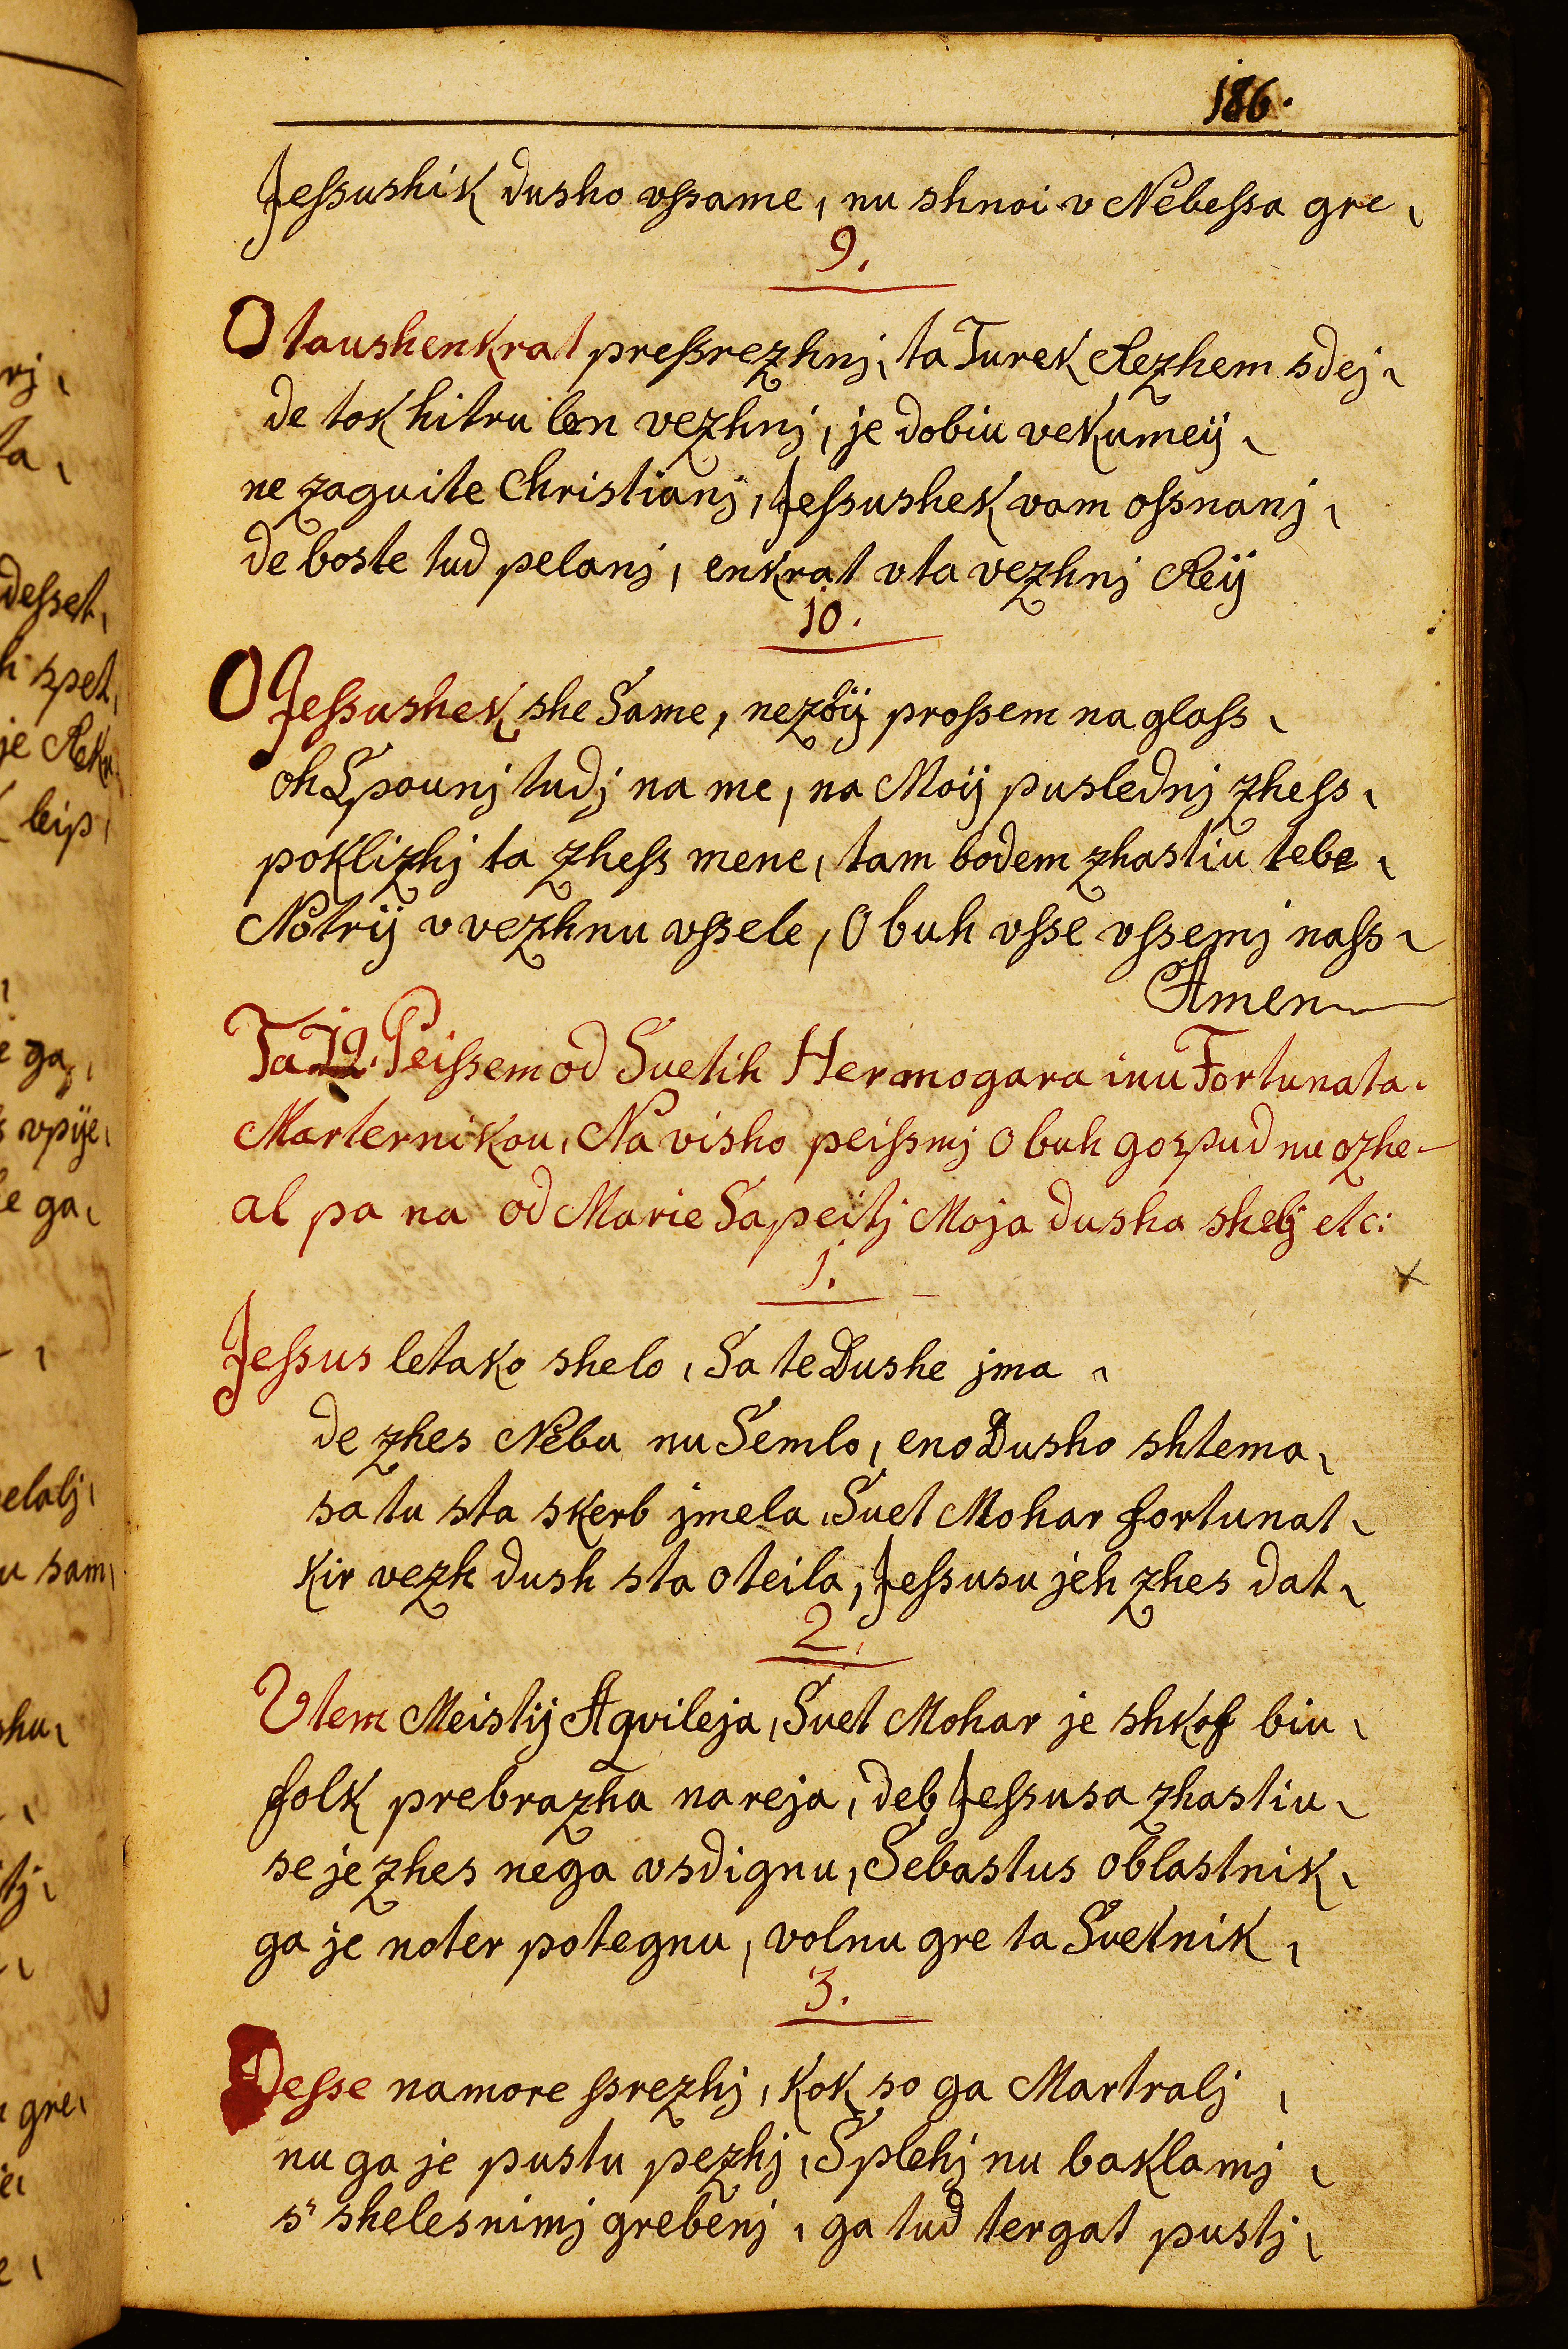 186.
Jeſsushik dusho vſsame, nu shnoi v Nebeſsa gre,
9.
O taushenkrat preſsrezhnj, ta Turek Rezhem sdej,
de tok hitru len vezhnj, je dobiu vekumeij,
ne zaguite Christianj, Jeſsushek vam oſsnanj,
de boste tud pelanj, enkrat v ta vezhnj Reij
10.
O Jeſsushek she Same, nezöij proſsem na glaſs,
oh Spounj tudj na me, na Moij puslednj zheſs,
poklizhj ta zheſs mene, tam bodem zhastiu tebe,
Notrij v vezhnu vſsele, O buh vſse vſsemj naſs,
Amen
Ta 12. Peiſsem od Suetih Hermogara inu Fortunata.
Marternikou, Na visho peiſsmj O buh gospud nu ozhe
al pa na od Marie Sapeitj Moja dusha shelj etc:
1.
Jeſsus letako shelo, Sa te Dushe jma,
de zhes Nebu nu Semlo, eno Dusho shtema,
sa tu sta skerb jmela, Suet Mohar fortunat,
kir vezh dush sta oteila, Jeſsusu jeh zhes dat,
2.
Vtem Meistij Aqvileja, Suet Mohar je shkof biu,
folk prebrazha nareja, deb Jeſsusa zhastiu,
se je zhes nega vsdignu, Sebastus oblastnik,
ga je noter potegnu, volnu gre ta Suetnik,
3.
Deſse namore ſsrezhj, kok so ga Martralj,
nu ga je pustu pezhj, S plehj nu baklamj,
s' shelesnimj grebenj, ga tud tergat pustj,